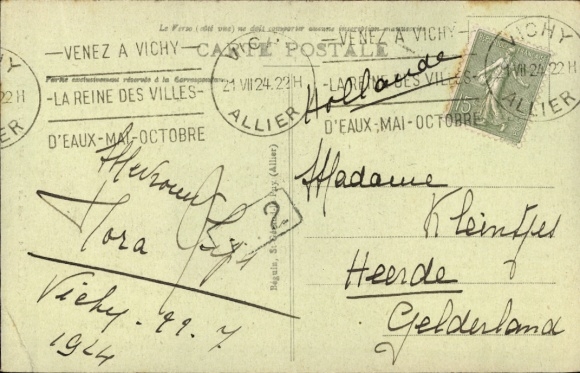 Le Verso (côté vue) ne doit comporter aucune inscription manuscrite
CARTE POSTALE
VENEZ A VICHY
-LA REINE DES VILLES-
D'EAUX-MAI-OCTOBRE
VICHY
21 VII 24. 22 H
ALLIER
VENEZ A VICHY
-LA REINE DES VILLES-
D'EAUX-MAI-OCTOBRE
VICHY
21 VII 24. 22 H
ALLIER
VICHY
22 H
ALLIER
Partie exclusivement réservée à la Correspondance
15c
Hollande
Madame
Kleintjes
Heerde
Gelderland
Mevrouw
Nora
Vichy - 22 - 7
1924
(Allier)